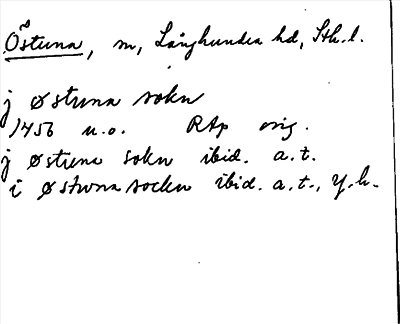 Östuna, sn, Långhundra hd, Sth. l.
j østuna sokn
1456 u.o. RAp orig.
j østuna sokn ibid. a.t.
i østwna sockn ibid. a.t., y.h.